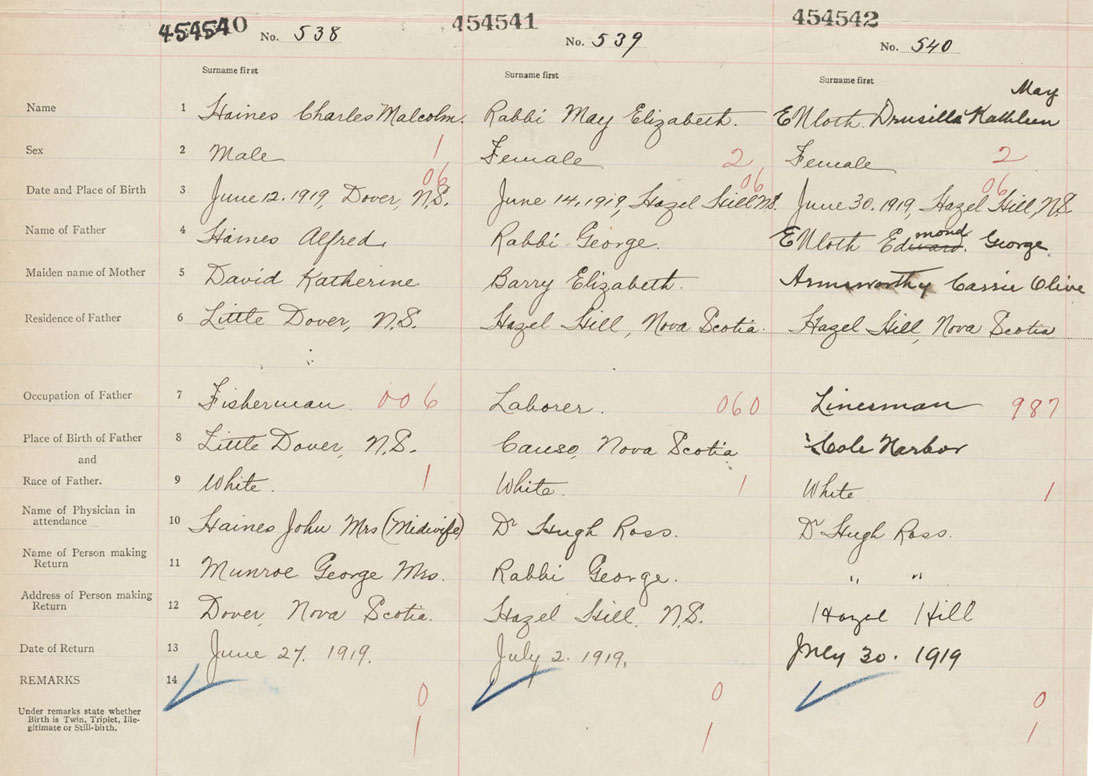 454540 454541 454542
No. 538 No. 539 No. 540
Surname first Surname first Surname first
May
Name 1 Haines Charles Malcolm. Rabbi May Elizabeth. Drusilla Kathleen
Sex 2 Male 1 Female 2 Female 2
06 06 06
Date and Place of Birth 3 June 12. 1919, Dover, N.S. June 14, 1919, Hazel Hill N.S. June 30. 1919, Hazel Hill, N.S.
mond
Name of Father 4 Haines Alfred. Rabbi George. Edward. George
Maiden name of Mother 5 David Katherine Barry Elizabeth. Armsworthy Cassie Olive
Residence of Father 6 Little Dover, N.S. Hazel Hill, Nova Scotia. Hazel Hill, Nova Scotia
Occupation of Father 7 Fisherman. 006 Laborer. 060 Linesman 987
Place of Birth of Father 8 Little Dover, N.S. Canso, Nova Scotia Cole Harbor
and
Race of Father. 9 White. 1 White. 1 White 1
Name of Physician in
attendance 10 Haines John Mrs (Midwife) Dr Hugh Ross. Dr Hugh Ross.
Name of Person making
Return 11 Munroe George Mrs. Rabbi George. " "
Address of Person making
Return 12 Dover, Nova Scotia. Hazel Hill, N.S. Hazel Hill
Date of Return 13 June 27, 1919. July 2. 1919. 30. 1919
REMARKS 14
0 0 0
Under remarks state whether
Birth is Twin, Triplet, Ille-
gitimate or Still-birth.
1 1 1